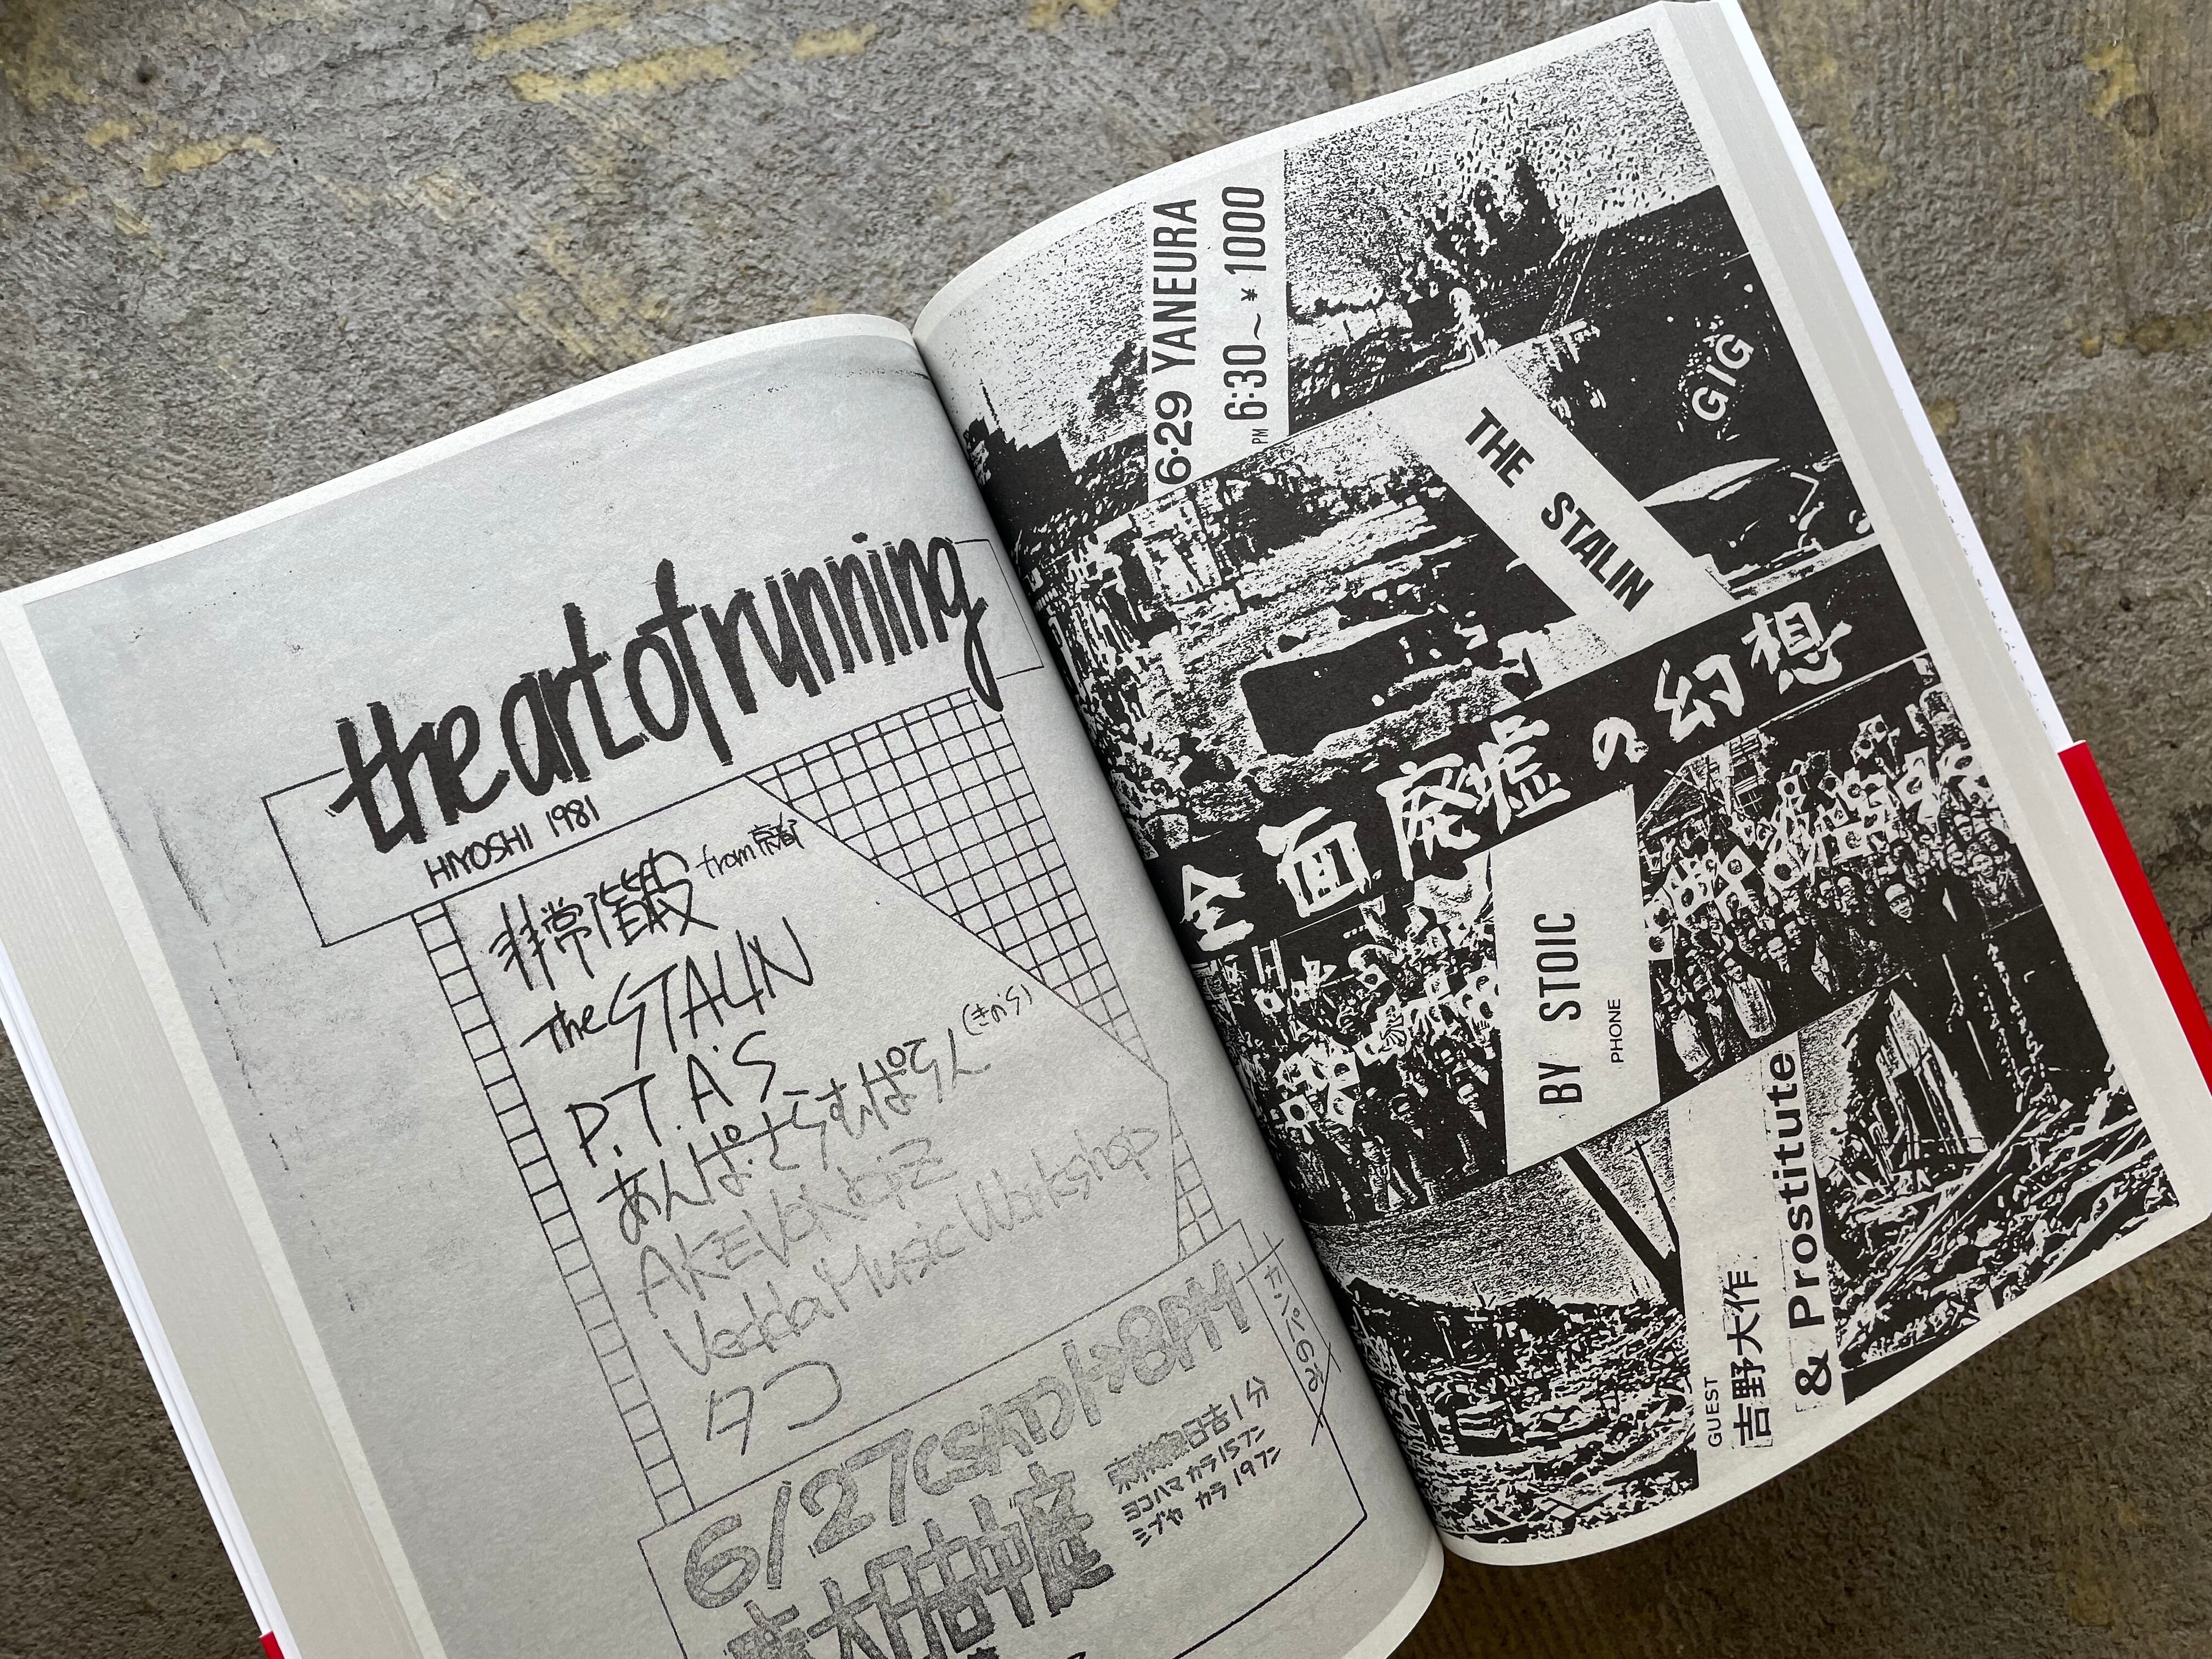 the art of running
HIYOSHI 1981
非常階段 from 京都
the STALIN
P.T.A'S
あんぱさらすぱらん (きのう)
AKEVONOIZ
Vedda Music Workshop
タコ
6/27(SAT) 1→8PM
慶大日吉中庭
東横線日吉1分
ヨコハマカラ15フン
シブヤ カラ 19フン
カンパのみ
6·29 YANEURA
PM 6:30〜 ¥1000
GIG
THE STALIN
全面廃墟の幻想
BY STOIC
PHONE
GUEST
吉野大作
& Prostitute